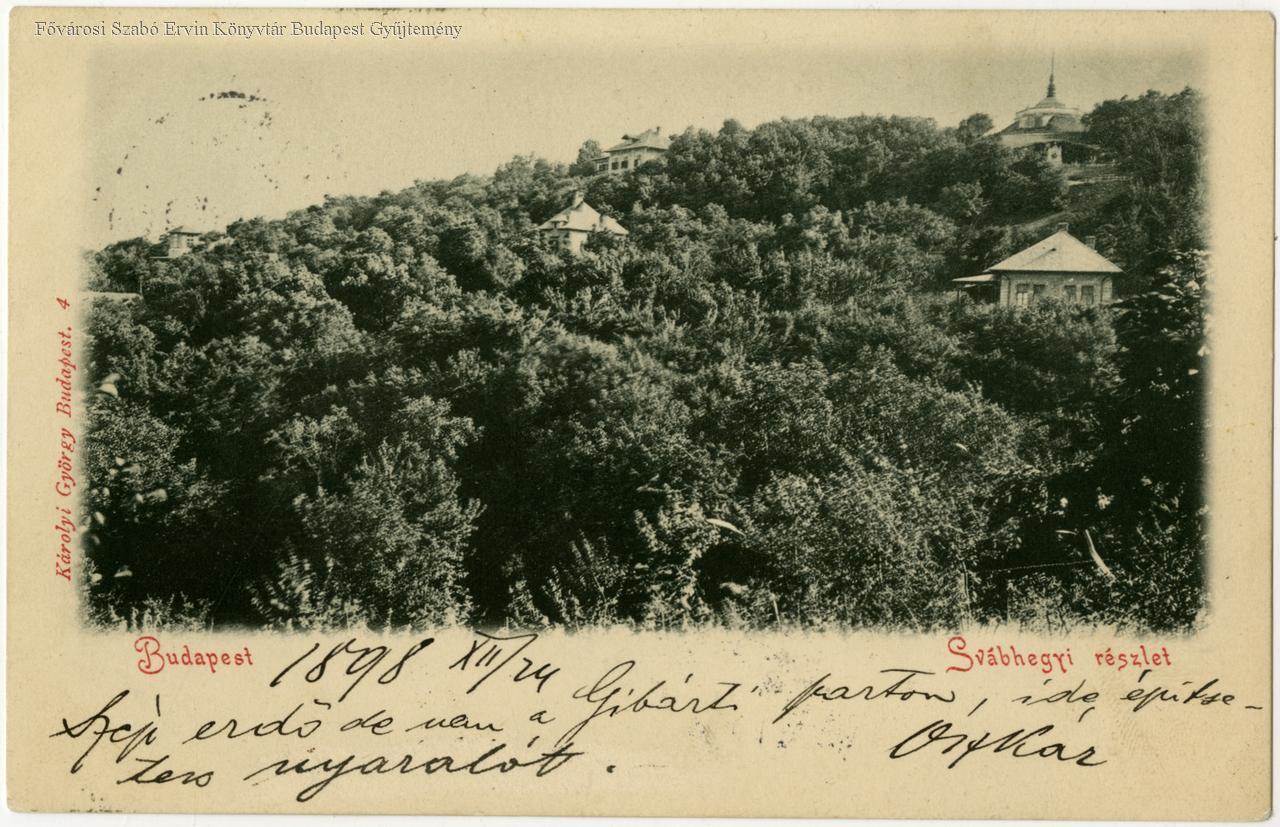 Fővárosi Szabó Ervin Könyvtár Budapest Gyűjtemény
Károlyi György Budapest. 4
Budapest
Svábhegyi részlet
1898 XII/24
Szép erdő de nem a Gibárti parton, ide építse-
tess nyaralót.
Oszkár